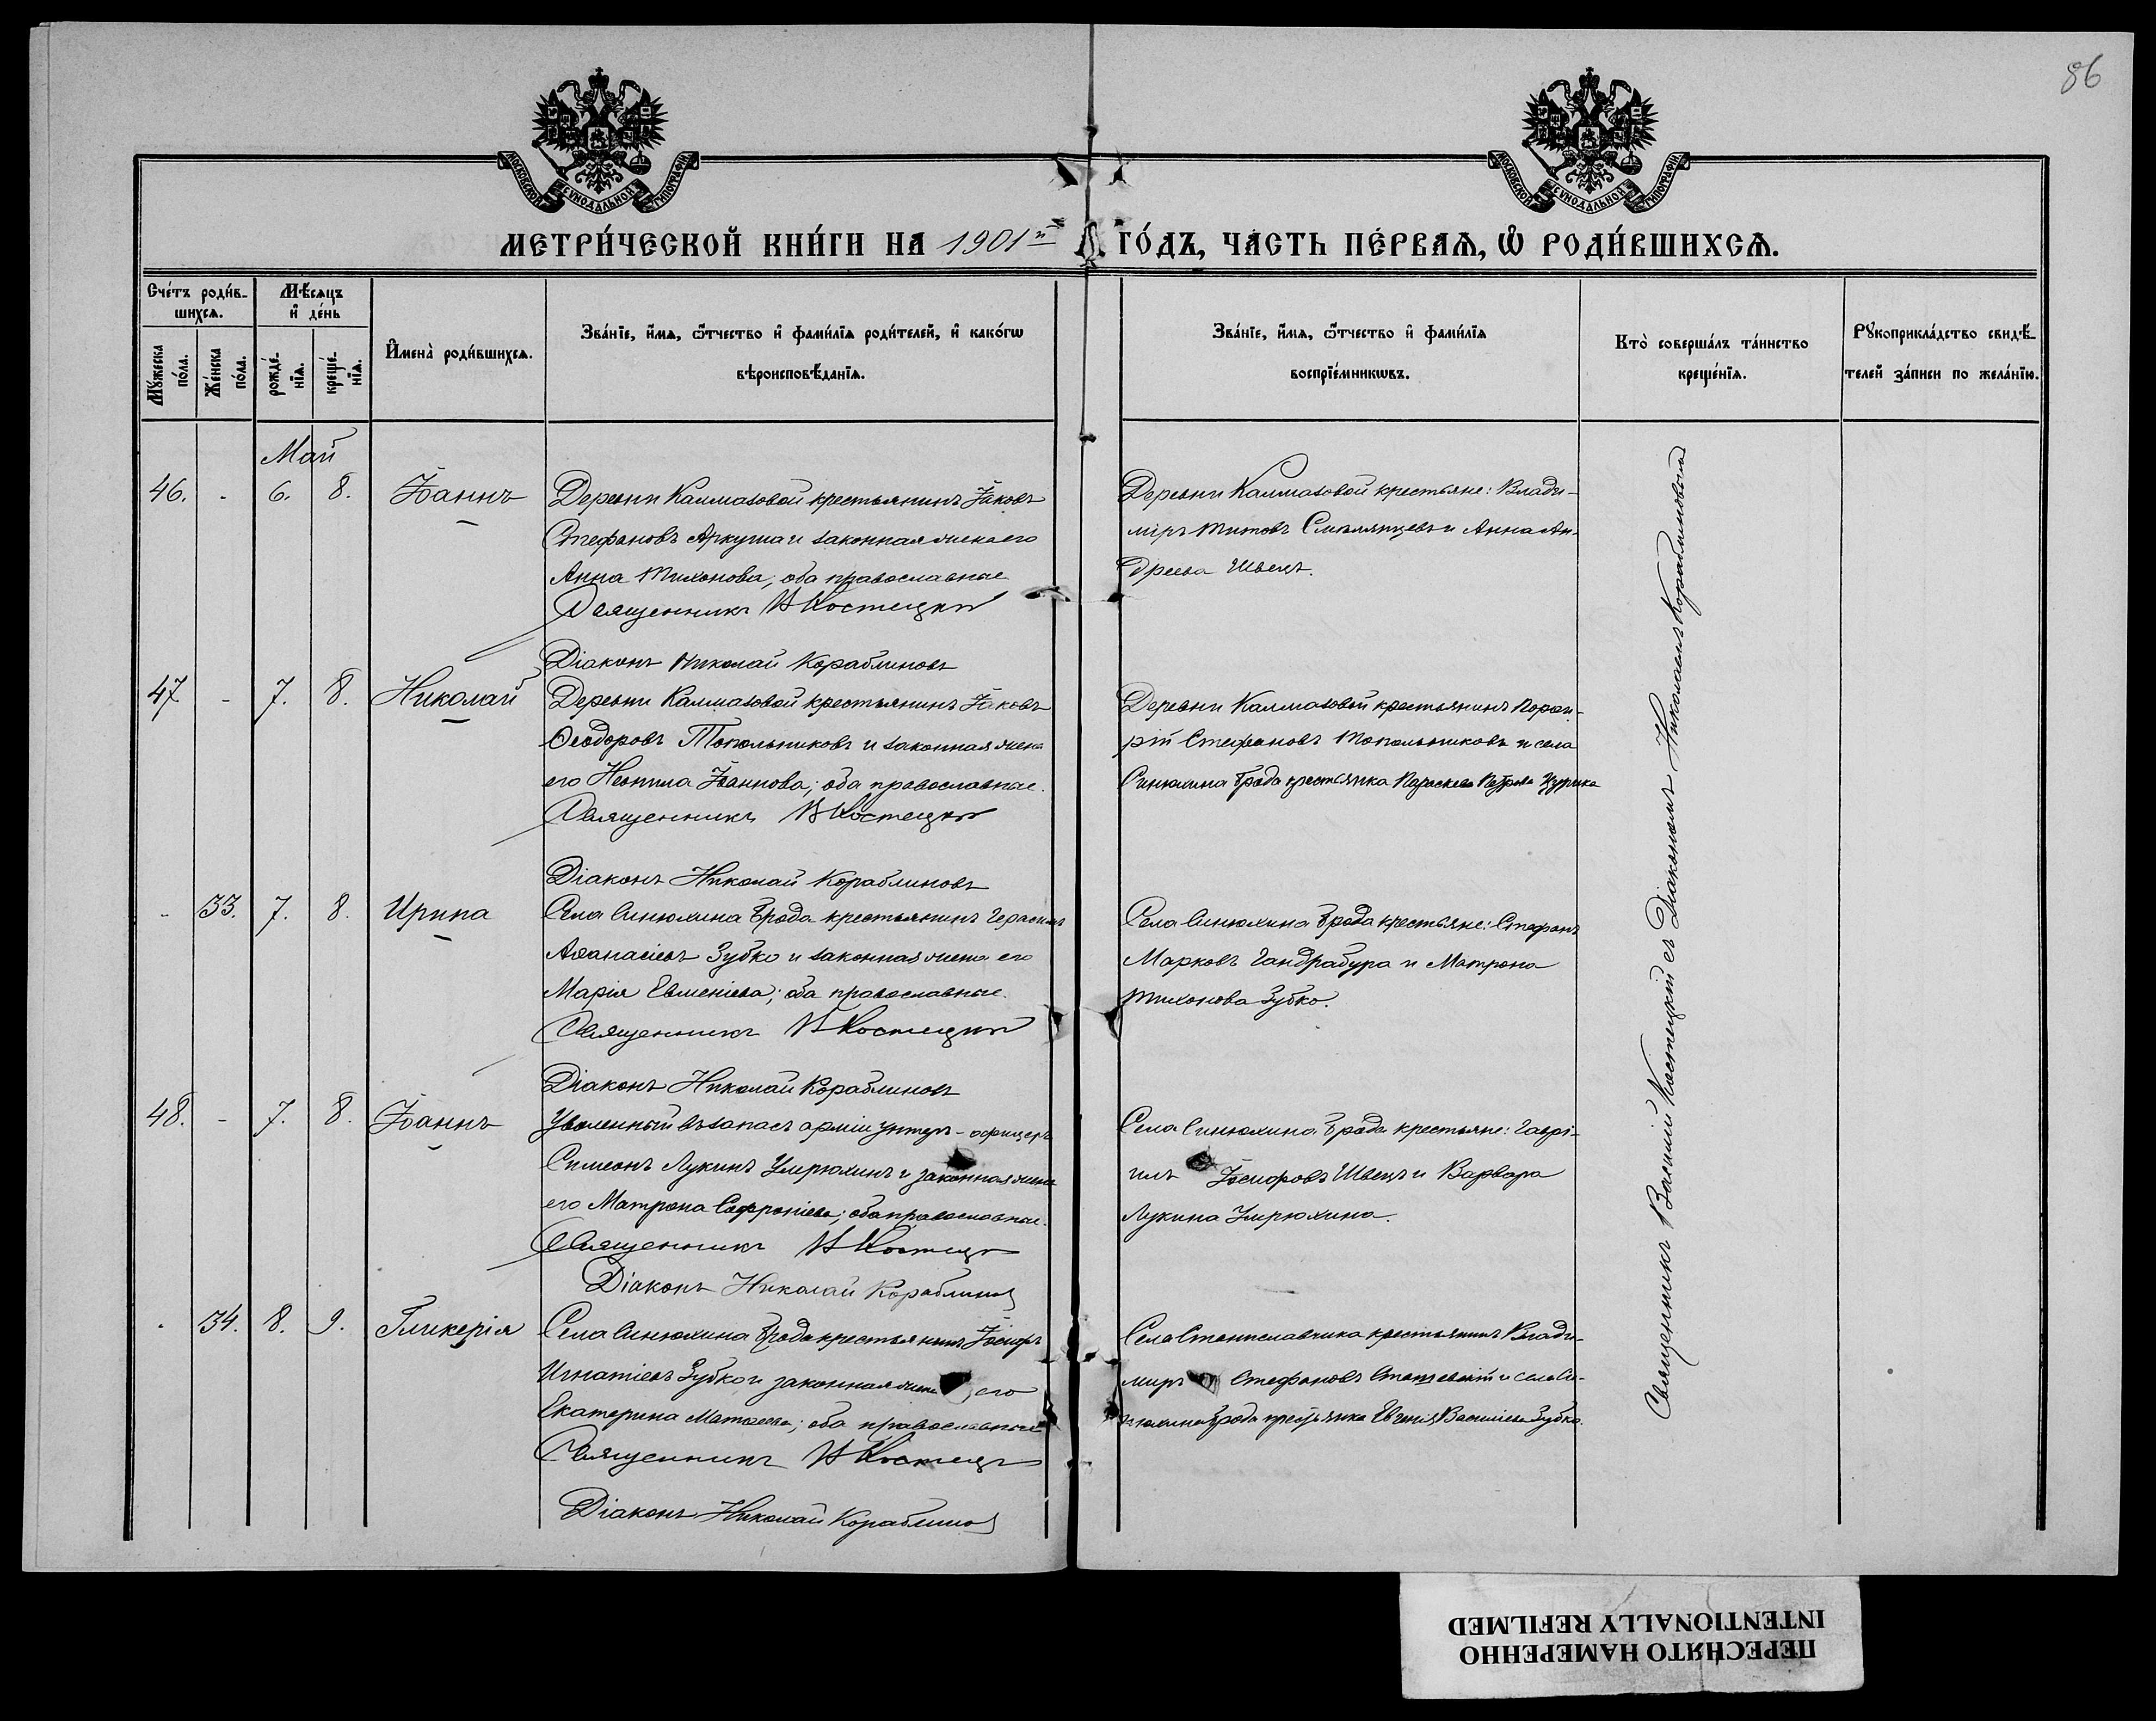 86
МОСКОВСКОЙ СѴНОДАЛЬНОЙ ТИПОГРАФІИ
МОСКОВСКОЙ СѴНОДАЛЬНОЙ ТИПОГРАФІИ
МЕТРИ́ЧЕСКОЙ КНИ́ГИ НА 1901й ГО́ДЪ, ЧА́СТЬ ПЕ́РВАѦ, Ѽ РОДИ́ВШИХСѦ.
Сче́тъ роди́в-
шихсѧ.
Мꙋ́жеска по́ла.
Же́нска по́ла.
Мѣ́сяцъ и де́нь
рожде́-нїѧ.
креще́-нїѧ.
Имена̀ роди́вшихсѧ.
Зва́нїе, и́мѧ, ѻ́тчество и фами́лїѧ роди́телей, и како́гѡ
вѣроисповѣ́данїѧ.
Зва́нїе, и́мѧ, ѻ́тчество и фами́лїѧ
воспрїе́мникѡвъ.
Кто̀ соверша́лъ та́инство
креще́нїѧ.
Рꙋкоприкла́дство свидѣ́-
телей за́писи по жела́нїю.
Май
46. - 6. 8. Іоаннъ
Деревни Калмазовой крестьянинъ Іаковъ
Стефановъ Аркуша и законная жена его
Анна Тихонова; оба православные
Священникъ В Костецкій
Діаконъ Николай Кораблиновъ
Деревни Калмазовой крестьяне: Влади-
міръ Титовъ Смѣлянцевъ и Анна Ан-
дреева Швецъ.
47. - 7. 8. Николай
Деревни Калмазовой крестьянинъ Іаковъ
Ѳеодоровъ Топольниковъ и законная жена
его Неонила Іоаннова; оба православные.
Священникъ В Костецкій
Діаконъ Николай Кораблиновъ
Деревни Калмазовой крестьянинъ Порфи-
рій Стефановъ Топольниковъ и села
Синюхина Брода крестьянка Параскева Петрова
- 33. 7. 8. Ирина
Села Синюхина Брода крестьянинъ Герасимъ
Аѳанасіевъ Зубко и законная жена его
Марія Евменіева; оба православные.
Священникъ В Костецкій
Діаконъ Николай Кораблиновъ
Села Синюхина Брода крестьяне: Стефанъ
Марковъ Гандрабура и Матрона
Тихонова Зубко.
48. - 7. 8. Іоаннъ
Уволенный въ запасъ арміи унтеръ-офицеръ
Симеонъ Лукинъ Умрюхинъ и законная жена
его Матрона Софроніева; оба православные.
Священникъ В Костецк
Діаконъ Николай Кораблинов
Села Синюхина Брода крестьяне: Гаврі-
илъ Іосифовъ Швецъ и Варвара
Лукина Умрюхина.
- 34. 8. 9. Гликерія
Села Синюхина Брода крестьянинъ Іосифъ
Игнатіевъ Зубко и законная жена его
Екатерина Матѳеева; оба православные
Священникъ В Костецк
Діаконъ Николай Кораблинов
Села Станиславчика крестьянинъ Влади-
миръ Стефановъ и села Си-
нюхина Брода крестьянка Евгенія Василіева Зубко.
Священникъ Василій Костецкій съ Діакономъ Николаемъ Кораблиновымъ
ПЕРЕСНЯТО НАМЕРЕННО
INTENTIONALLY REFILMED